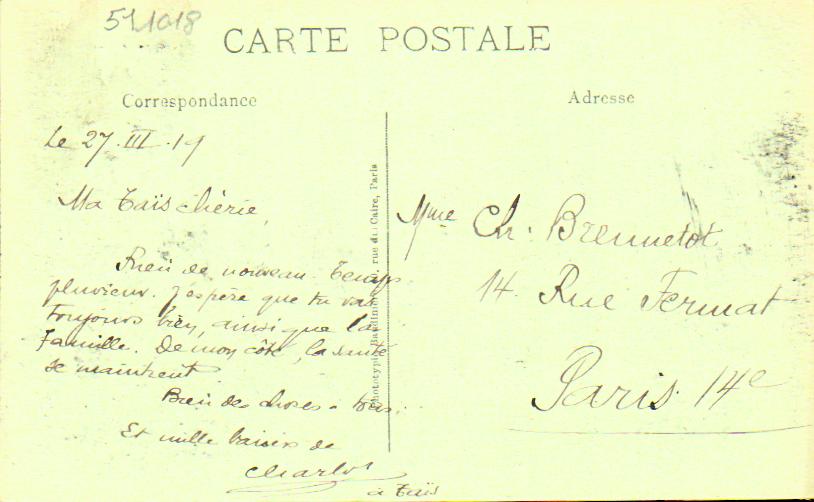 511018
CARTE POSTALE
Correspondance
Adresse
Le 27.III.19
Ma Taïs chérie,
Rien de nouveau. Temps
pluvieux. J'espère que tu vas
toujours bien, ainsi que la
famille. De mon côté, la santé
se maintient
Bien des choses à tous.
Et mille baisers de
Charlot
à Taïs
rue du Caire, Paris
Mme Ch. Brennetot
14 Rue Fermat
Paris 14e